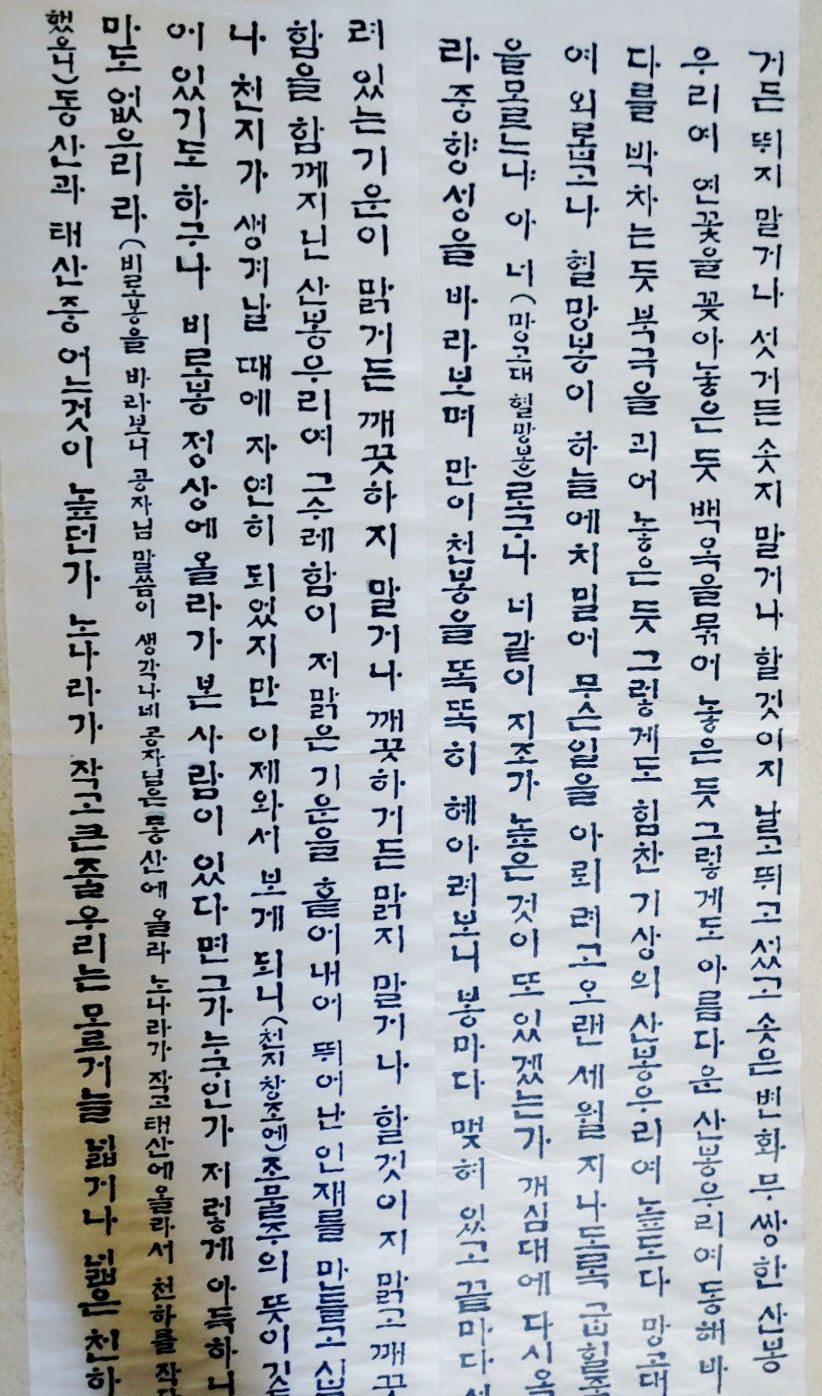 거든 뛰지 말거나 섯거든 솟지 말거나 할것이지 날고뛰고 섰고 솟은 변화 무쌍한 산봉
우리여 연꽃을 꽃아놓은 듯 백옥을묶어 놓은 듯 그렇게도 아름다운 산봉우리여 동해바
다를 박차는 듯 북극을 괴어 놓은 듯 그렇게도 힘찬 기상의 산봉우리여 높도다 망고대
여 외롭고나 혈망봉이 하늘에치밀어 무슨일을 아뢰려고 오랜세월 지나도록 굽힐줄
을모르느냐 아 너(망고대 혈망봉)로고나 너같이 지조가 높은 것이 또 있겠는가 개심대에 다시올
라 중향성을 바라보며 만이천봉을 똑똑히 헤아려보니 봉마다 맺혀 있고 끝마다
려 있는 기운이 맑거든 깨끗하지 말거나 깨끗하거든 맑지 말거나 할것이지 맑고 깨끗
함을 함께지닌 산봉우리여 그수례함이 저맑은 기운을 흩어내어 뛰어난 인재를 만들고
나 천지가 생겨날 때에 자연히 되었지만 이제와서 보게 되니(천지창조에)조물주의 뜻이
어 있기도 하구나 비로봉 정상에 올라가 본 사람이 있다면 그가누구인가 저렇게 아득하니
마도 없으리라(비로봉을 바라보니 공자님 말씀이 생각나네 공자님은 동산에 올라 노나라가 작고 태산에올라서 천하를
했으니)동산과 태산중 어느것이 높던가 노나라가 작고 큰줄우리는 모르거늘 넓거나 넓은 천하